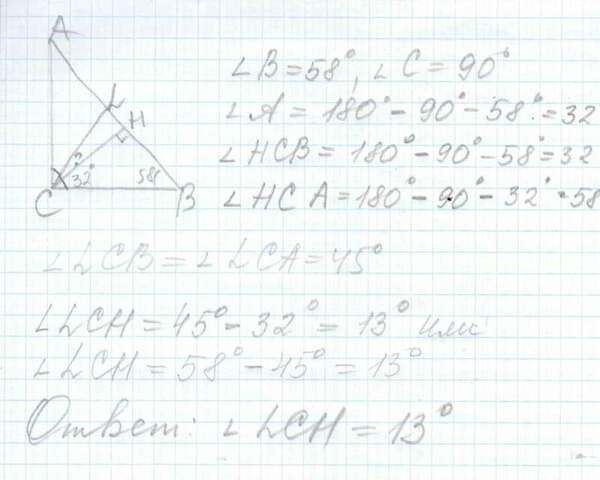 A
L
H
?
32°
58°
C
B
∠B = 58°, ∠C = 90°
∠A = 180° - 90° - 58° = 32
∠HCB = 180° - 90° - 58° = 32
∠HCA = 180° - 90° - 32° = 58
∠LCB = ∠LCA = 45°
∠LCH = 45° - 32° = 13° или
∠LCH = 58° - 45° = 13°
Ответ: ∠LCH = 13°